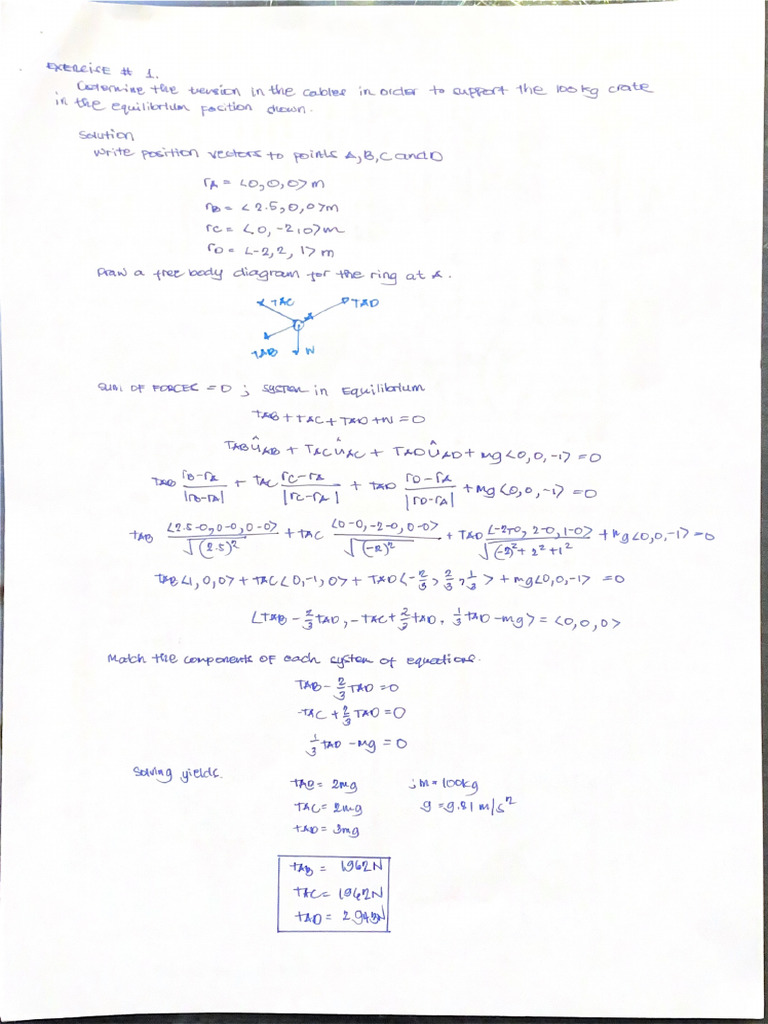 EXERCISE # 1.
Determine the tension in the cables in order to support the 100kg crate
in the equilibrium position shown.
Solution
Write position vectors to points A, B, C and D
rA = <0,0,0> m
rB = <2.5,0,0> m
rC = <0,-2,0> m
rD = <-2,2,1> m
Draw a free body diagram for the ring at A.
TAC TAD
A
TAB W
SUM OF FORCES = 0 ; SYSTEM in Equilibrium
TAB + TAC + TAD + W = 0
TAB ûAB + TAC ûAC + TAD ûAD + mg <0,0,-1> = 0
TAB (rB-rA)/|rB-rA| + TAC (rC-rA)/|rC-rA| + TAD (rD-rA)/|rD-rA| + mg <0,0,-1> = 0
TAB <2.5-0,0-0,0-0>/√(2.5)² + TAC <0-0,-2-0,0-0>/√(-2)² + TAD <-2-0, 2-0, 1-0>/√(-2)²+2²+1² + mg <0,0,-1> = 0
TAB <1,0,0> + TAC <0,-1,0> + TAD <-2/3, 2/3, 1/3> + mg <0,0,-1> = 0
<TAB - 2/3 TAD, -TAC + 2/3 TAD, 1/3 TAD - mg> = <0,0,0>
Match the components of each system of equations.
TAB - 2/3 TAD = 0
-TAC + 2/3 TAD = 0
1/3 TAD - mg = 0
Solving yields.
TAB = 2mg ; m = 100kg
TAC = 2mg g = 9.81 m/s²
TAD = 3mg
TAB = 1962N
TAC = 1962N
TAD = 2943N